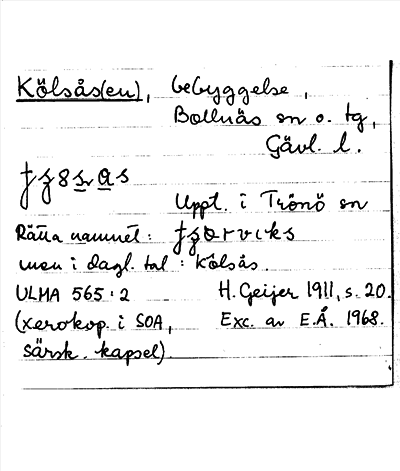 Kölsås(en), bebyggelse,
Bollnäs sn o. tg,
Gävl. l.
Uppt. i Trönö sn
Rätta namnet:
men i dagl. tal: Kölsås.
ULMA 565:2 H. Geijer 1911, s. 20.
(xerokop. i SOA, Exc. av E.Å. 1968.
särsk. kapsel)